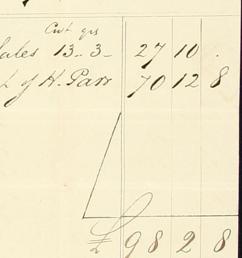 Cwt qrs
Sales 13..3- 27 10 .
of H. Parr 70 12 8
£ 98 2 8